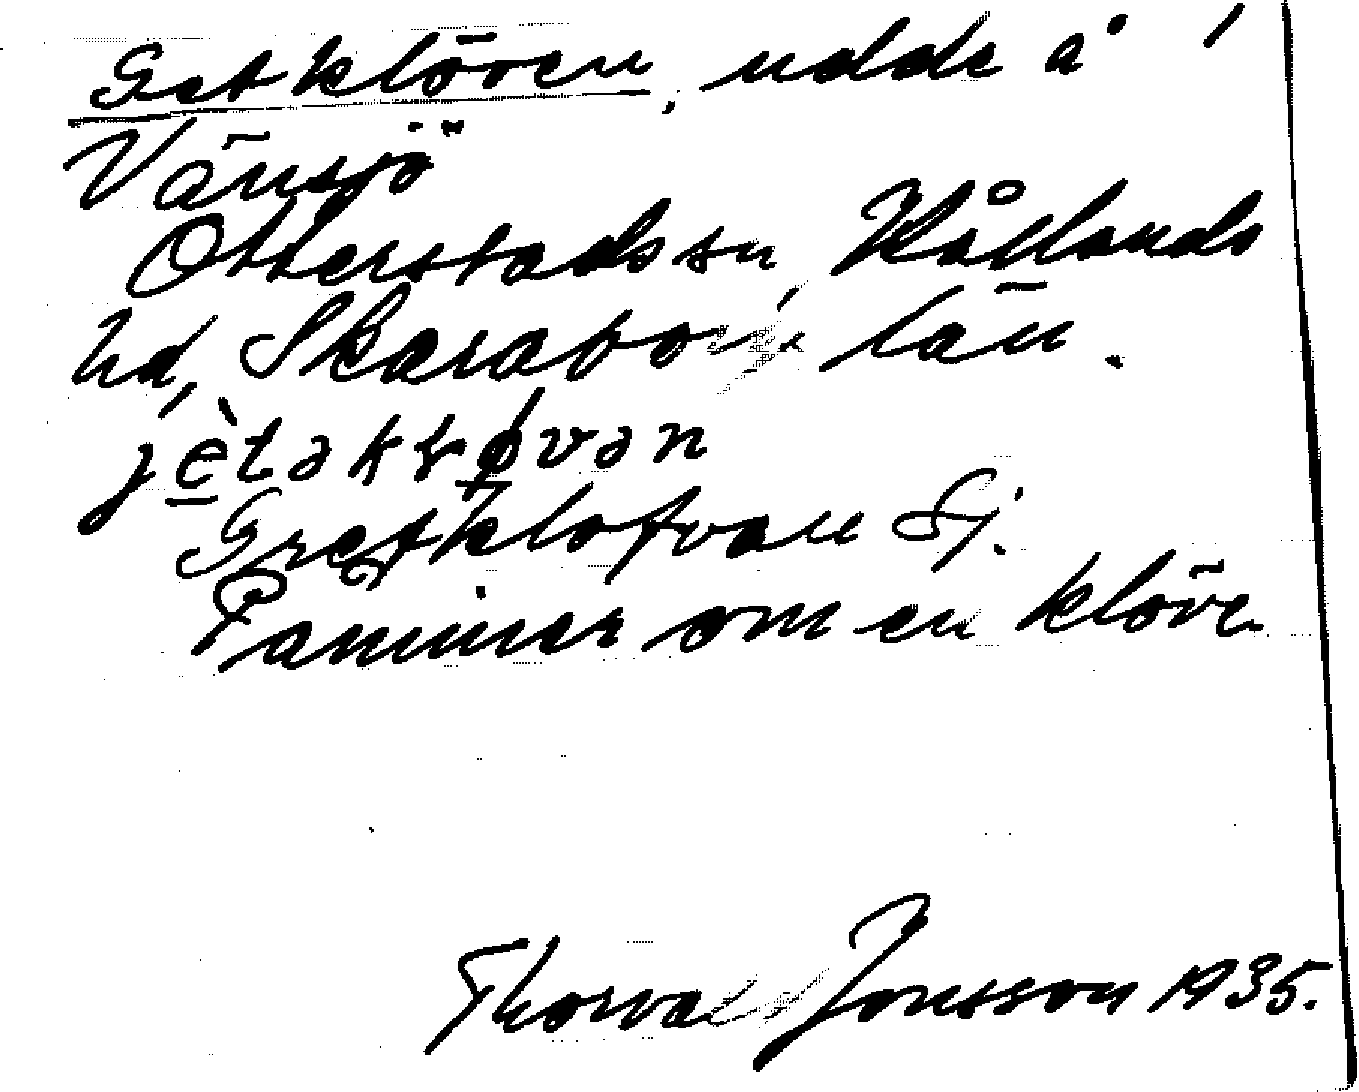 Getklöven, udde å
Vänsjö
Otterstads sn, Kållands
hd, Skaraborgs län.
jètəklø̀vən
Gretklofvan Sj.
Paminner om en klöve
Thorvald Jonsson 1935.